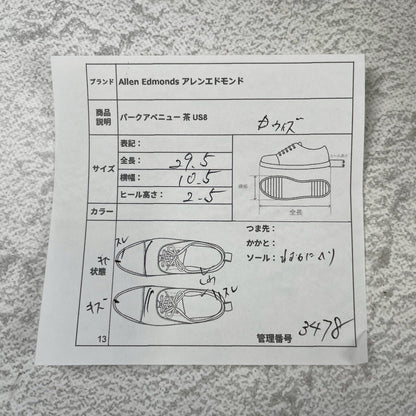 ブランド Allen Edmonds アレンエドモンド
商品説明 パークアベニュー 茶 US8 Dウィズ
サイズ
表記：
全長： 29.5
横幅： 10.5
ヒール高さ： 2.5
ヒール高さ
横幅
全長
カラー
状態
スレ
キズ
キズ
スレ
つま先：
かかと：
ソール：
13
管理番号 3478